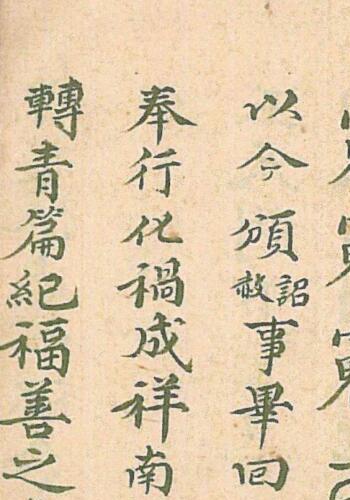 以今頒詔赦事畢回
奉行化禍成祥南
轉青篇紀福善之